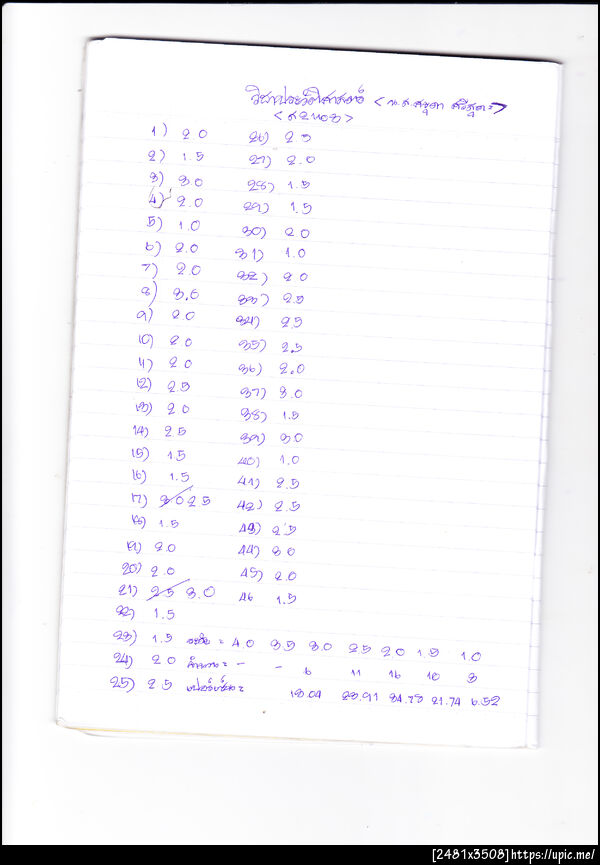 วิชาประวัติศาสตร์ <
1) 2.0
2) 1.5
3) 3.0
4) 2.0
5) 1.0
6) 2.0
7) 2.0
8) 3.0
9) 2.0
10) 2.0
11) 2.0
12) 2.5
13) 2.0
14) 2.5
15) 1.5
16) 1.5
17) 3.0 2.5
18) 1.5
19) 2.0
20) 2.0
21) 2.5 3.0
22) 1.5
23) 1.5
24) 2.0
25) 2.5
26) 2.5
27) 2.0
28) 1.5
29) 1.5
30) 2.0
31) 1.0
32) 2.0
33) 2.5
34) 2.5
35) 2.5
36) 2.0
37) 3.0
38) 1.5
39) 3.0
40) 1.0
41) 2.5
42) 2.5
43) 2.5
44) 3.0
45) 2.0
46 1.5
ระดับ = 4.0 3.5 3.0 2.5 2.0 1.5 1.0
จำนวน = - - 6 11 16 10 3
เปอร์เซ็น = 13.04 23.91 34.78 21.74 6.52
[2481x3508]https://upic.me/